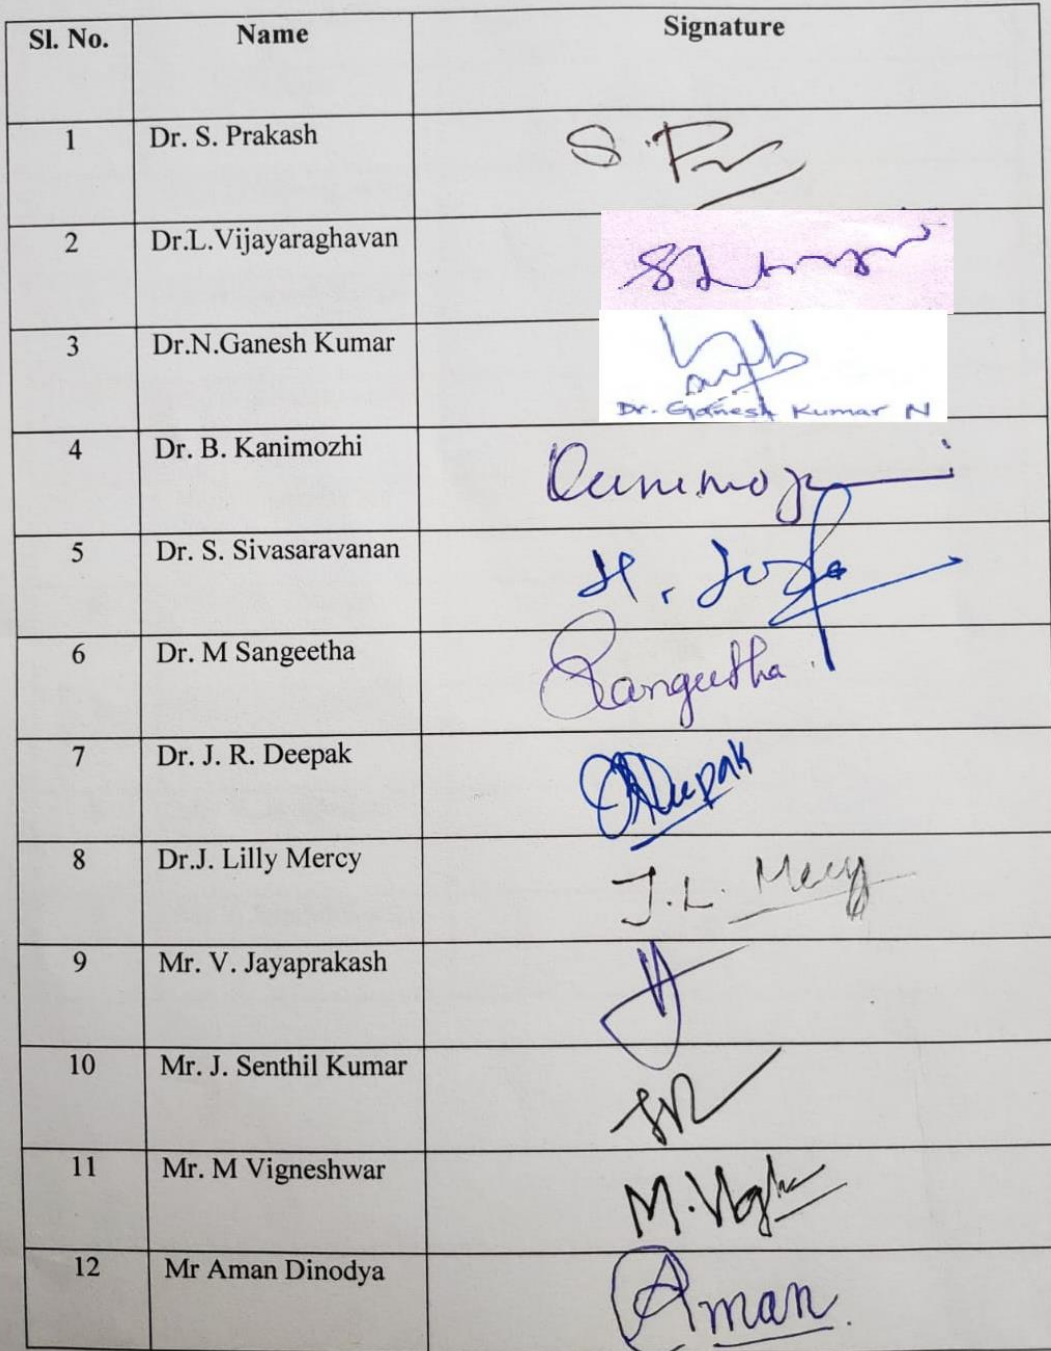 Sl. No. Name Signature
1 Dr. S. Prakash S. Pr
2 Dr.L.Vijayaraghavan
3 Dr.N.Ganesh Kumar
Dr. Ganesh Kumar N
4 Dr. B. Kanimozhi
5 Dr. S. Sivasaravanan
6 Dr. M Sangeetha Sangeetha
7 Dr. J. R. Deepak JRDeepak
8 Dr.J. Lilly Mercy J.L. Mercy
9 Mr. V. Jayaprakash
10 Mr. J. Senthil Kumar
11 Mr. M Vigneshwar
12 Mr Aman Dinodya Aman.